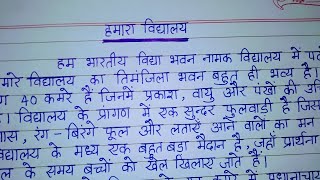 हमारा विद्यालय
हम भारतीय विद्या भवन नामक विद्यालय में
मारे विद्यालय का तिमंजिला भवन बहुत ही भव्य है।
40 कमरे हैं जिनमें प्रकाश, वायु और पंखों की
। विद्यालय के प्रागंण में एक सुन्दर फुलवाड़ी है जिस
रंग-बिरंगे फूल और लताएँ आने वालों का मन
विद्यालय के मध्य एक बहुत बड़ा मैदान है, जहाँ प्रार्थना
के समय बच्चों को खेल खिलाए जाते हैं।